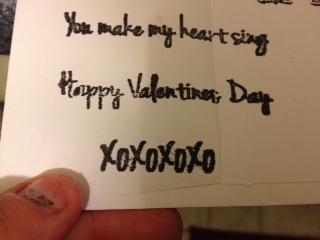 You make my heart sing
Happy Valentines Day
XOXOXOXO